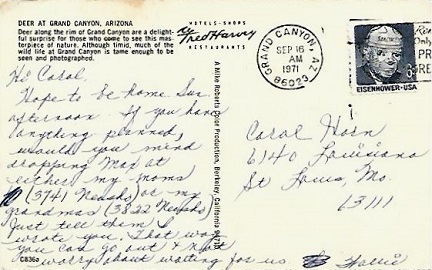 DEER AT GRAND CANYON, ARIZONA
Deer along the rim of Grand Canyon are a delight-
ful surprise for those who come to see this mas-
terpiece of nature. Although timid, much of the
wild life at Grand Canyon is tame enough to be
seen and photographed.
HOTELS - SHOPS
Fred Harvey
RESTAURANTS
GRAND CANYON, AZ
SEP 16
AM
1971
86023
EISENHOWER - USA
PR
RE
A Mike Roberts Color Production, Berkeley, California
Hi Carol
Hope to be home Sun
afternoon. If you have
anything planned,
would you mind
dropping Max at
either my moms
(3741 Neosho) or my
grandmas (3822 Neosho)
Just tell them I
wrote you. That way
you can go out & not
worry about waiting for us
C836a
Carol Horn
6140 Louisiana
St Louis, Mo.
63111